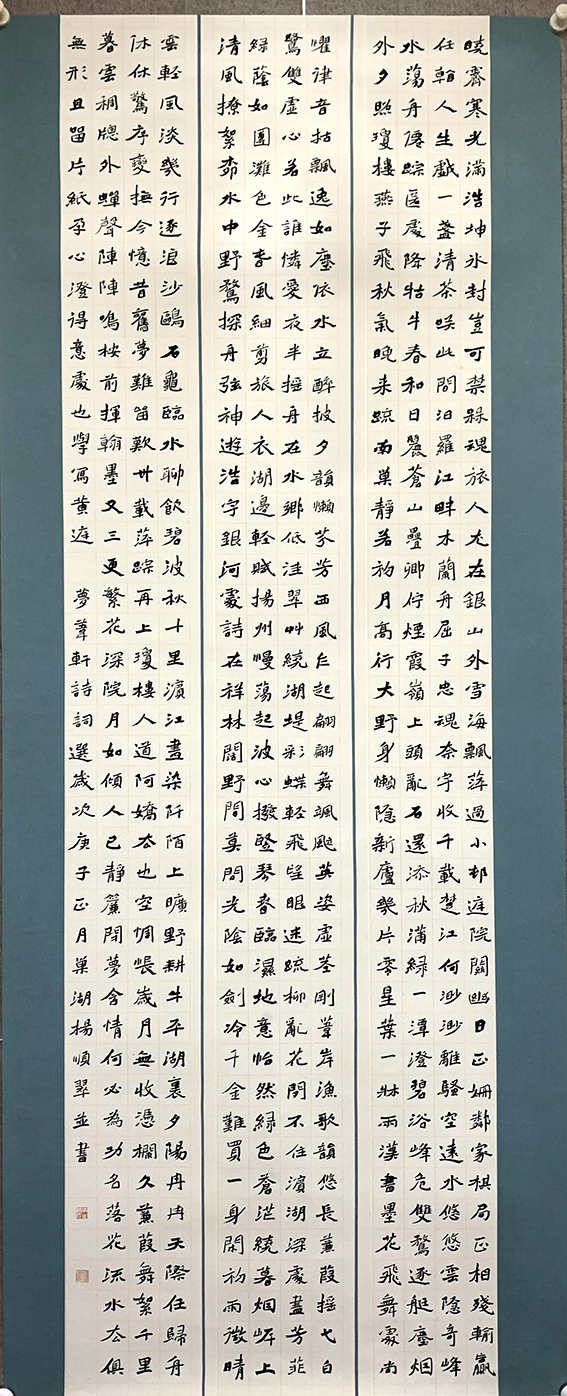 曉齋寒光滿浩坤冰封豈可禁孫魂旅人尤在銀山外雪海飄萍過小邨庭院關幽日正姍鄰家棋局正相殘輸贏
任賴人生戲一盞清茶咲此間汨羅江畔木蘭舟屈子忠魂奈字收千載楚江何渺渺離騷空遠水悠悠雲隱奇峰
水蕩舟僊踪匿處降牯牛春和日麗蒼山疊卿佇煙霞嶺上頭亂石還添秋滿綠一潭澄碧浴峰危雙鶩逐艇塵烟
外夕照瓊樓燕子飛秋氣晚來疏南巢靜若初月高行大野身懶隱新廬幾片零星葉一牀兩漢書墨花飛舞處尚
耀律音拈飄逸如塵依水立醉披夕韻懶芬芳西風乍起翩翩舞颯颯英姿虛莖剛葦岸漁歌韻悠長蒹葭搖弋白
鷺雙虛心若此誰憐愛夜半搖舟在水鄉低洼翠艸繞湖堤彩蝶輕飛望眼迷疏柳亂花關不住濱湖深處盡芳菲
綠蔭如園灘色金杏風細剪旅人衣湖邊輕賦揚州慢蕩起波心撥豎琴春臨濕地意怡然綠色蒼茫繞暮烟岸上
清風撩絮柰水中野鶩探舟強神遊浩宇銀河處詩在祥林闊野間莫問光陰如劍冷千金難買一身閑初雨微晴
雲輕風淡幾行逐浪沙鷗石龜臨水聊飲碧波秋十里濱江畫染阡陌上曠野耕牛平湖裏夕陽冉冉天際任歸舟
休休驚序變撫今憶昔舊夢難留歎卅載萍踪再上瓊樓人道阿嬌去也空惆悵歲月無收憑欄久蒹葭舞絮千里
暮雲稠牕外蟬聲陣陣鳴桉前揮翰墨又三更繁花深院月如傾人已靜簾閉夢含情何必為功名落花流水去俱
無形且留片紙平心澄得意處也學寫黃庭 夢葦軒詩詞選歲次庚子正月巢湖楊順翠並書